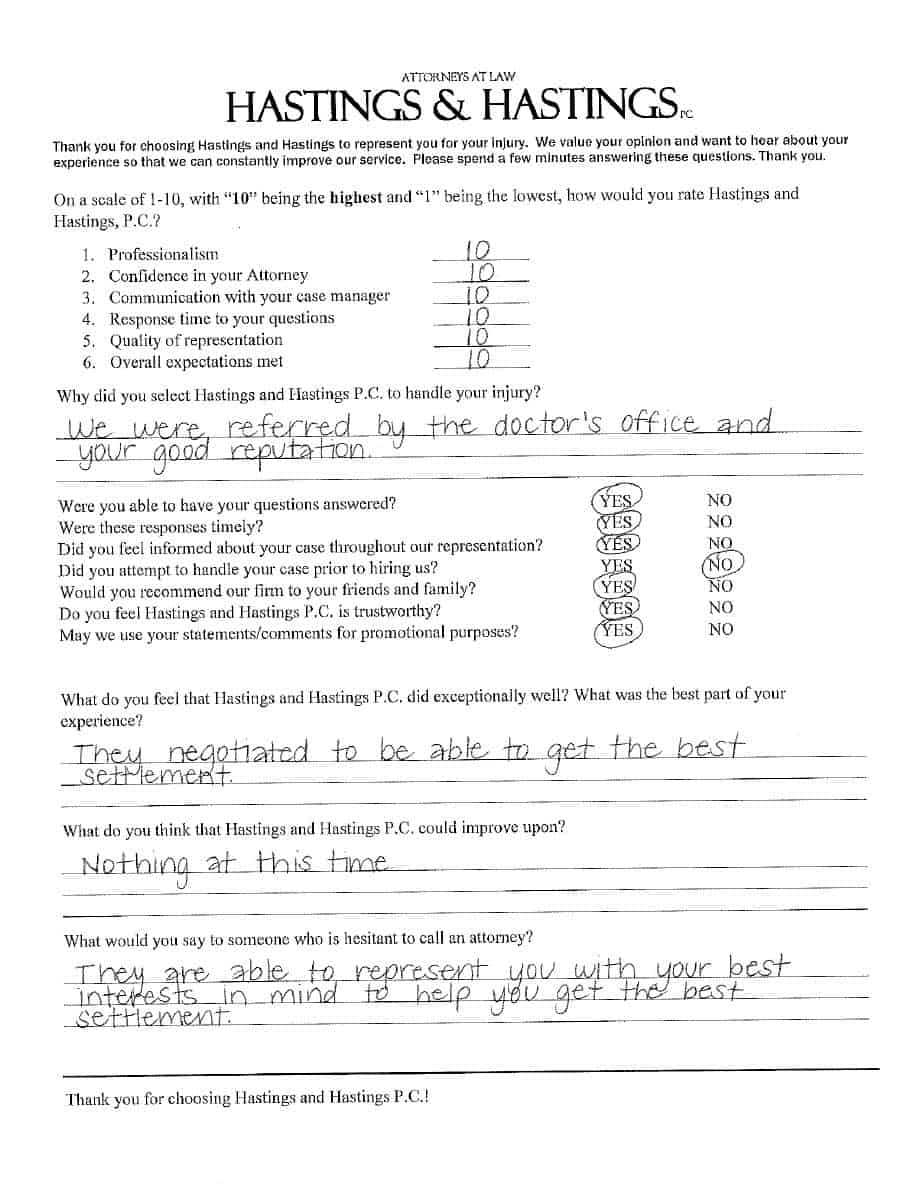 ATTORNEYS AT LAW
HASTINGS & HASTINGS PC
Thank you for choosing Hastings and Hastings to represent you for your injury. We value your opinion and want to hear about your
experience so that we can constantly improve our service. Please spend a few minutes answering these questions. Thank you.
On a scale of 1-10, with “10” being the highest and “1” being the lowest, how would you rate Hastings and
Hastings, P.C.?
1. Professionalism 10
2. Confidence in your Attorney 10
3. Communication with your case manager 10
4. Response time to your questions 10
5. Quality of representation 10
6. Overall expectations met 10
Why did you select Hastings and Hastings P.C. to handle your injury?
We were referred by the doctor's office and
your good reputation.
Were you able to have your questions answered? YES NO
Were these responses timely? YES NO
Did you feel informed about your case throughout our representation? YES NO
Did you attempt to handle your case prior to hiring us? YES NO
Would you recommend our firm to your friends and family? YES NO
Do you feel Hastings and Hastings P.C. is trustworthy? YES NO
May we use your statements/comments for promotional purposes? YES NO
What do you feel that Hastings and Hastings P.C. did exceptionally well? What was the best part of your
experience?
They negotiated to be able to get the best
settlement.
What do you think that Hastings and Hastings P.C. could improve upon?
Nothing at this time
What would you say to someone who is hesitant to call an attorney?
They are able to represent you with your best
interests in mind to help you get the best
settlement.
Thank you for choosing Hastings and Hastings P.C.!